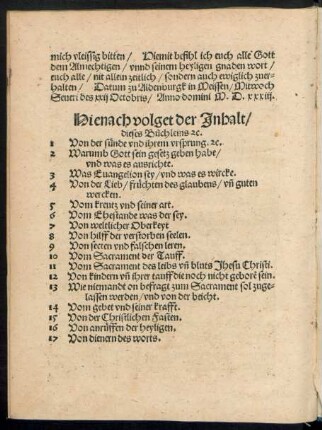 mich vleissig bitten / Hiemit befihl ich euch alle Gott
dem Almechtigen / vnnd seinem heyligen gnaden wort /
euch alle / nit allein zeitlich / sondern auch ewiglich zuer-
halten / Datum zu Aldenburgk in Meissen / Mitwoch
Seueri des xxij Octobris / Anno domini M. D. xxxiij.
Hienach volget der Inhalt /
dieses Büchleins ꝛc.
1 Von der sünde vnd ihrem vrsprung. ꝛc.
2 Warumb Gott sein gesetz geben habe /
vnd was es ausrichte.
3 Was Euangelion sey / vnd was es wircke.
4 Von der Lieb / früchten des glaubens / vn̄ guten
wercken.
5 Vom kreutz vnd seiner art.
6 Vom Ehestande was der sey.
7 Von weltlicher Oberkeyt
8 Von hilff der verstorben seelen.
9 Von secten vnd falschen leren.
10 Vom Sacrament der Tauff.
11 Vom Sacrament des leibs vn̄ bluts Jhesu Christi.
12 Von kindern vn̄ ihrer tauff die noch nicht geborē sein.
13 Wie niemandt on befragt zum Sacrament sol zuge-
lassen werden / vnd von der beicht.
14 Vom gebet vnd seiner krafft.
15 Von der Christlichen Fasten.
16 Von anrüffen der heyligen.
17 Von dienern des worts.